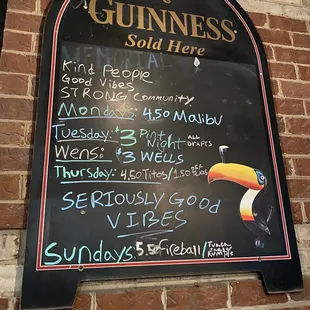 GUINNESS
Sold Here
MEMORIAL
Kind People
Good Vibes
STRONG COMMUNITY
Mondays: 4.50 Malibu
Tuesday: $3 Pint Night ALL DRAFTS
Wens: $3 WELLS
Thursday: 4.50 Titos/1.50
SERIOUSLY GOOD
VIBES
Sundays: 5.50 fireball/